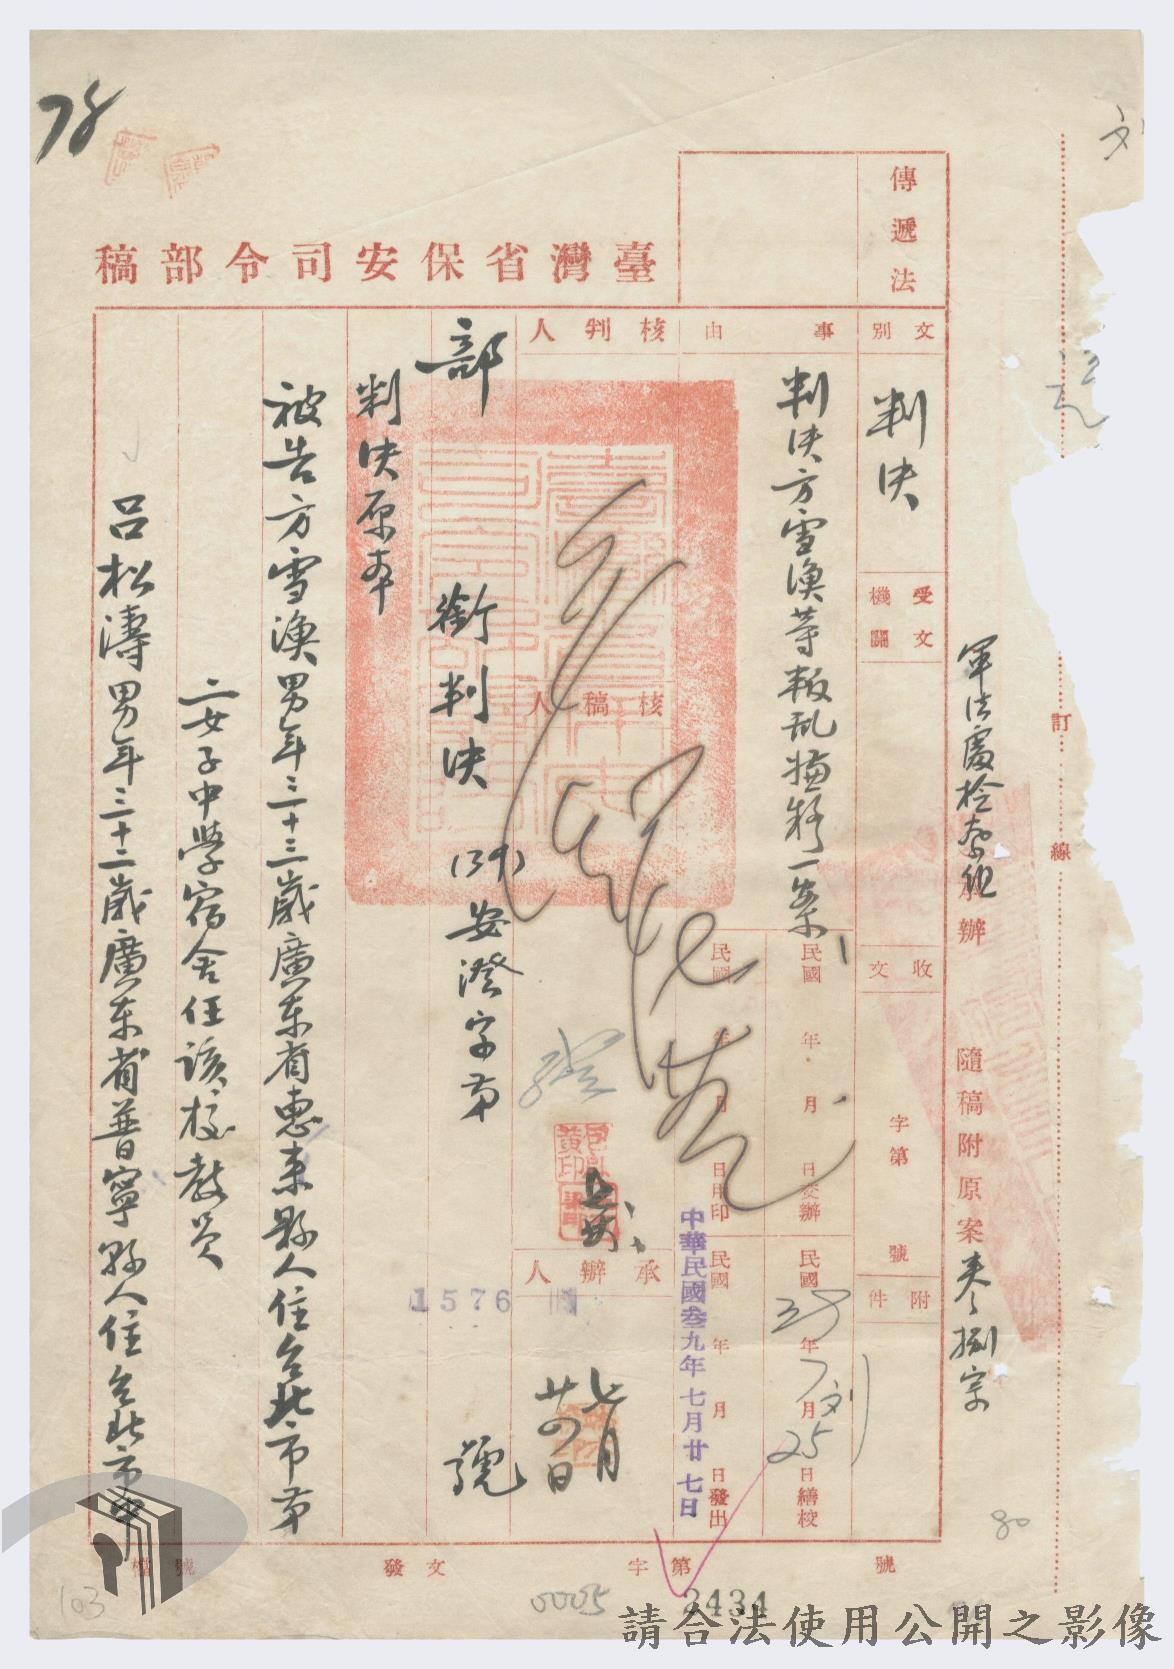 78
傳遞法
臺灣省保安司令部稿
文別
判決
受文機關
收文
字第
號
附件
事由
判決方雪漁等叛亂
一案
民國
年
月
日交辦
民國
39年
7月
25日繕校
民國
年
月
日用印
民國
年
月
日發出
中華民國叁九年七月廿七日
核判人
核稿人
承辦人
七月
廿四日
部
銜判決
(39)安澄字第
1576
號
判決原本
被告方雪漁男年三十三歲廣东省惠来縣人住台北市第
二女子中學宿舍任該校教員
呂松濤男年三十二歲廣东省普寧縣人住台北市中
訂
線
承辦
隨稿附原案
捌宗
80
檔號
發文
字第
號
0005
2434
103
請合法使用公開之影像